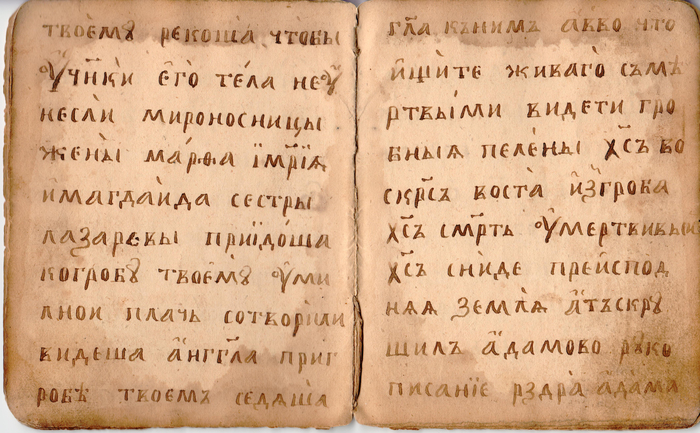 твоемꙋ рекоша чтобы
ᲂу҆чн҃ки є҆го̀ те́ла неᲂу҆
несли мироносницы
жены̀ ма́рѳа і҆мр҃їѧ
и҆магдаида сестры
лазаревы прїидо́ша
когробꙋ твоемꙋ ᲂу҆ми
лнои плачь сотвори́ли
видеша а҆нгг҃ла приг
робѣ твоемъ седѧ́ша
гл҃а къ нимъ авво что
и҆щи́те живаго̀ съмѣ
ртвы́ми видети гро
бныѧ пеле́ны хс҃ъ во
скр҃съ воста̀ и҆згрока
хс҃ъ смр҃ть ᲂу҆мертвивыи
хс҃ъ сниде преи҆спод
нѧѧ землѧ̀ а҆тъскрꙋ
шилъ а҆дамово рꙋко
писанїе рздра̀ а҆дама